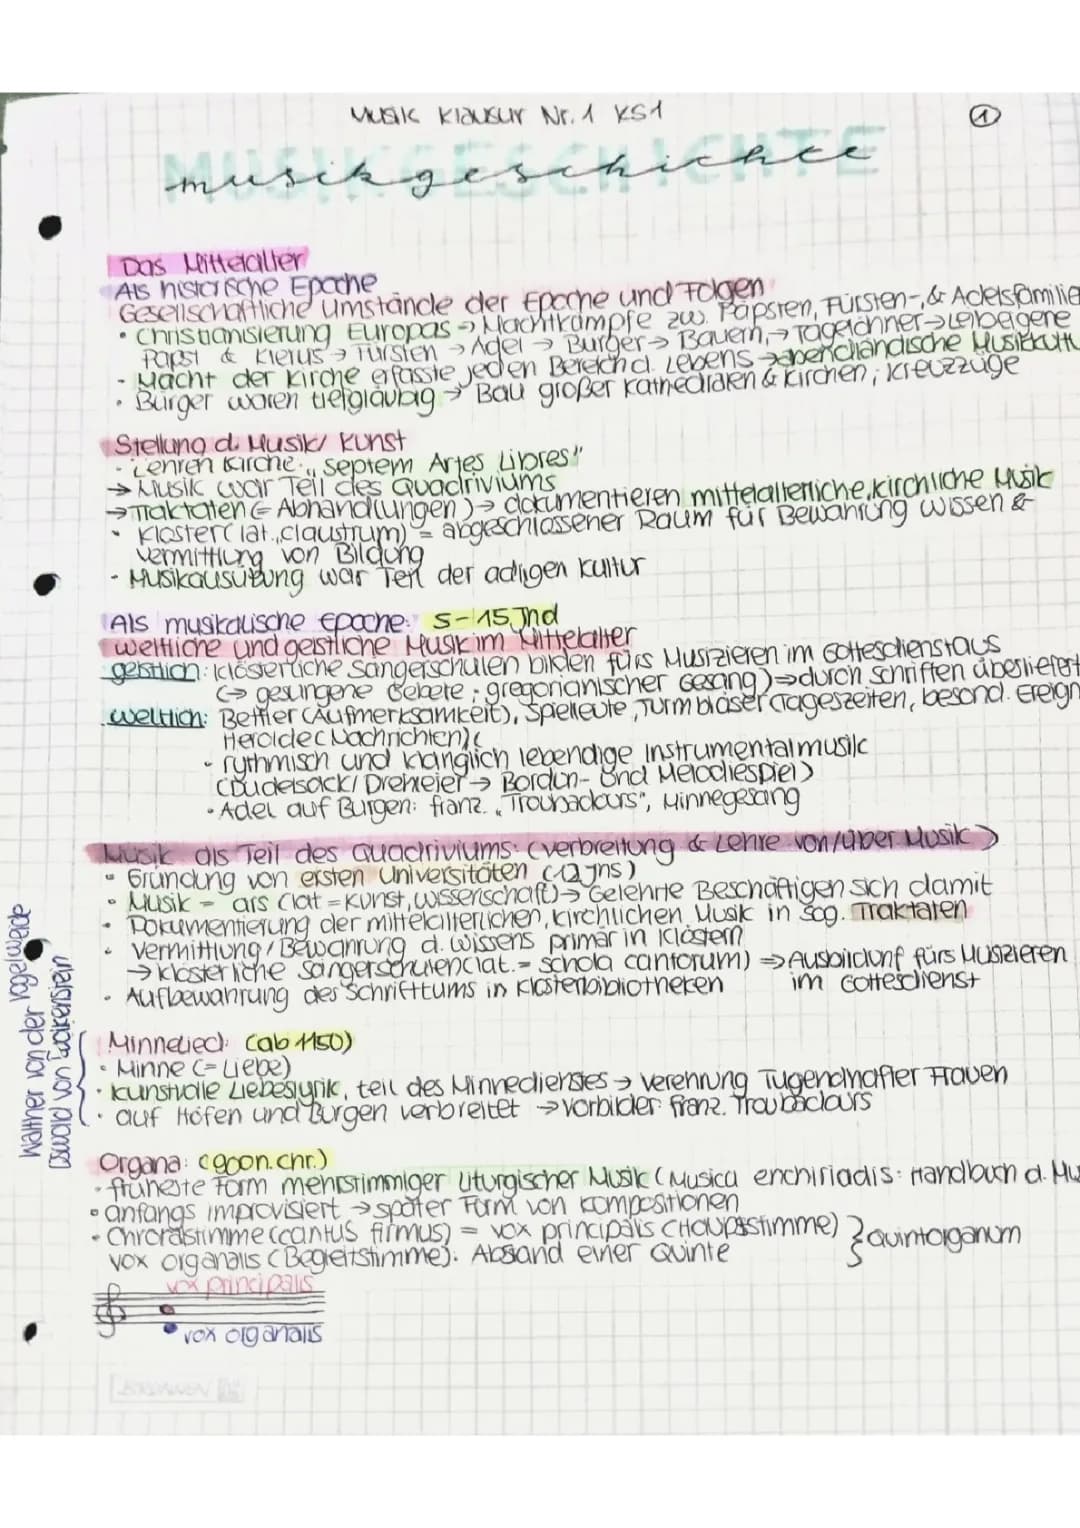 Musik Klausur Nr. 1 KS1
1
MUSIKGESCHICHTE
musikgeschichte
Das Mittelalter
Als historische Epoche
Gesellschaftliche Umstände der Epoche und Folgen
• Christianisierung Europas → Machtkämpfe zw. Päpsten, Fürsten-, & Adelsfamilie
Papst & Klerus → Fürsten → Adel → Bürger → Bauern, → Tagelöhner → Leibeigene
- Macht der Kirche erfasste jeden Bereich d. Lebens → abendländische Musikkultu
• Bürger waren tiefgläubig → Bau großer Kathedralen & Kirchen; Kreuzzüge
Stellung d. Musik/ Kunst
- Lehren Kirche: „Septem Artes Libres"
→ Musik war Teil des Quadriviums
→ Traktaten (= Abhandlungen) → dokumentieren mittelalterliche, kirchliche Musik
• Kloster (lat. „claustrum) = abgeschlossener Raum für Bewahrung Wissen &
Vermittlung von Bildung
- Musikausübung war Teil der adligen Kultur
Als musikalische Epoche: 5-15 Jhd
weltliche und geistliche Musik im Mittelalter
geistlich: klösterliche Sängerschulen bilden fürs Musizieren im Gottesdienst aus
(→ gesungene Gebete; gregorianischer Gesang) ⇒ durch Schriften überliefert
weltlich: Bettler (Aufmerksamkeit), Spielleute, Turmbläser (Tageszeiten, besond. Ereign
Herolde (Nachrichten) (
- rythmisch und klanglich lebendige Instrumentalmusik
(Dudelsack/ Drehleier → Bordun- und Melodiespiel)
• Adel auf Burgen: franz. „Troubadours", Minnegesang
Musik als Teil des Quadriviums: (Verbreitung & Lehre von/über Musik)
• Gründung von ersten Universitäten (12 Jhs)
• Musik = "ars (lat = Kunst, Wissenschaft) → Gelehrte Beschäftigen sich damit
• Dokumentierung der mittelalterlichen, kirchlichen Musik in sog. Traktaten
• Vermittlung / Bewahrung d. Wissens primär in Klöstern
→ klösterliche Sängerschulen (lat. = schola cantorum) ⇒ Ausbildunf fürs Musizieren
im Gottesdienst
• Aufbewahrung des Schrifttums in Klosterbibliotheken
Walther von der Vogelweide
Oswald von Wolkenstein
Minnelied: (ab 1150)
• Minne (= Liebe)
• kunstvolle Liebeslyrik, teil des Minnedienstes → Verehrung Tugendhafter Frauen
• auf Höfen und Burgen verbreitet → Vorbilder: franz. Troubadours
Organa: (900n.chr.)
• früheste Form mehrstimmiger liturgischer Musik (Musica enchiriadis: Handbuch d. Mu
• anfangs improvisiert → später Form von Kompositionen
• Chroralstimme (cantus firmus) = vox principalis (Haupsstimme) } Quintorganum
vox organalis (Begleitstimme): Absand einer Quinte
vox principalis
vox organalis
BRUNNEN